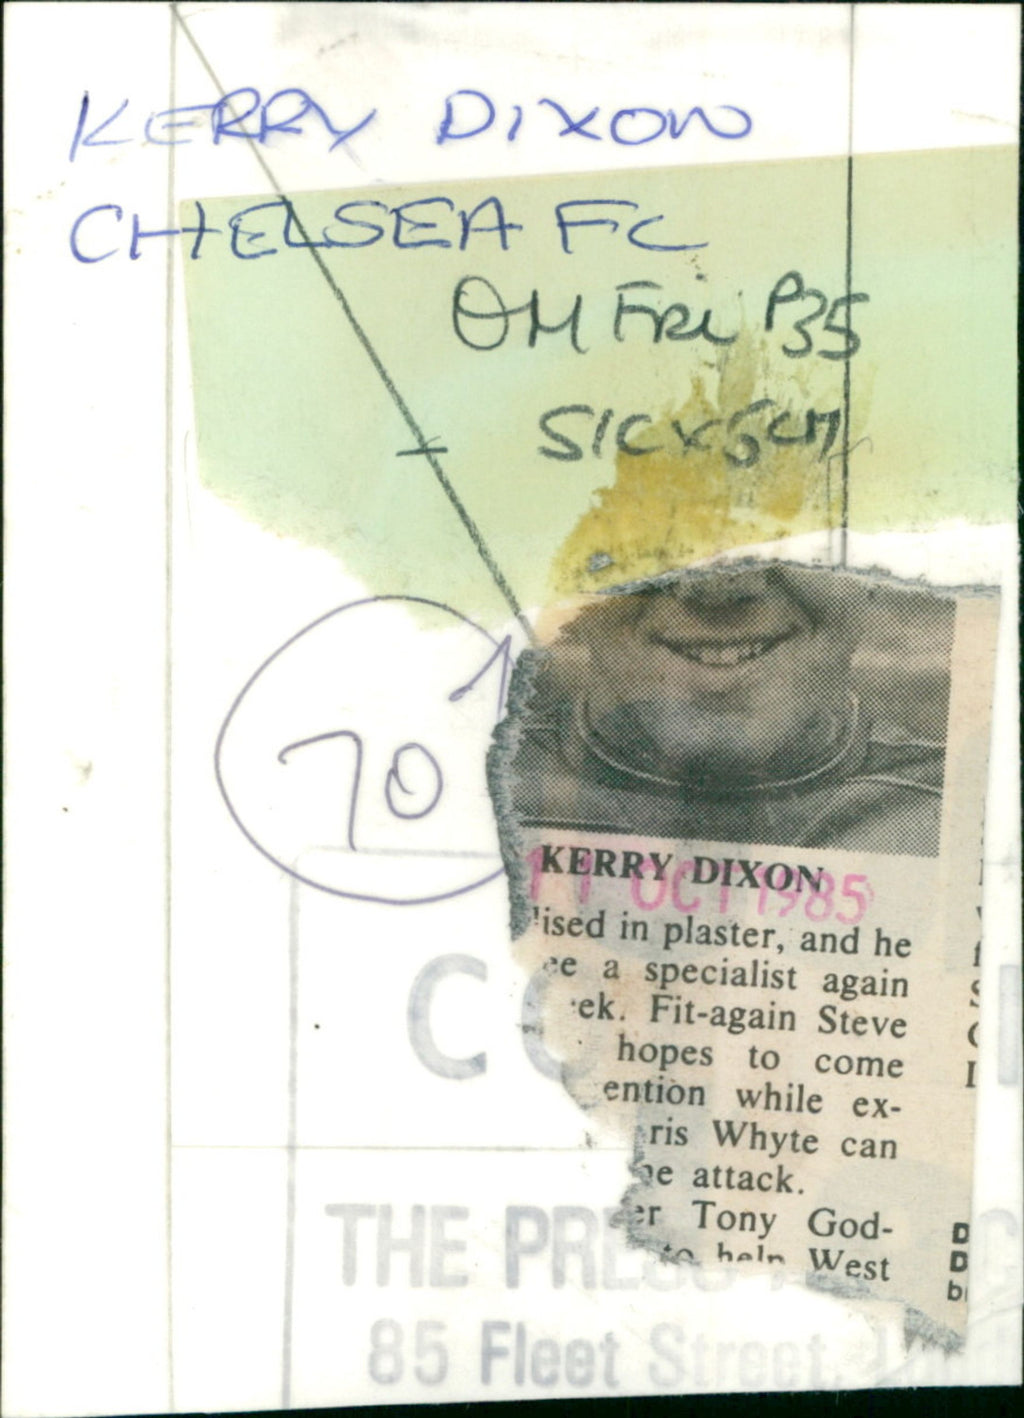 KERRY DIXON
CHELSEA FC
P35
70
KERRY DIXON
11 OCT 1985
lised in plaster, and he
ee a specialist again
ek. Fit-again Steve
hopes to come
ention while ex-
ris Whyte can
he attack.
er Tony God-
to help West
D
D
b
THE PRE
85 Fleet Street,